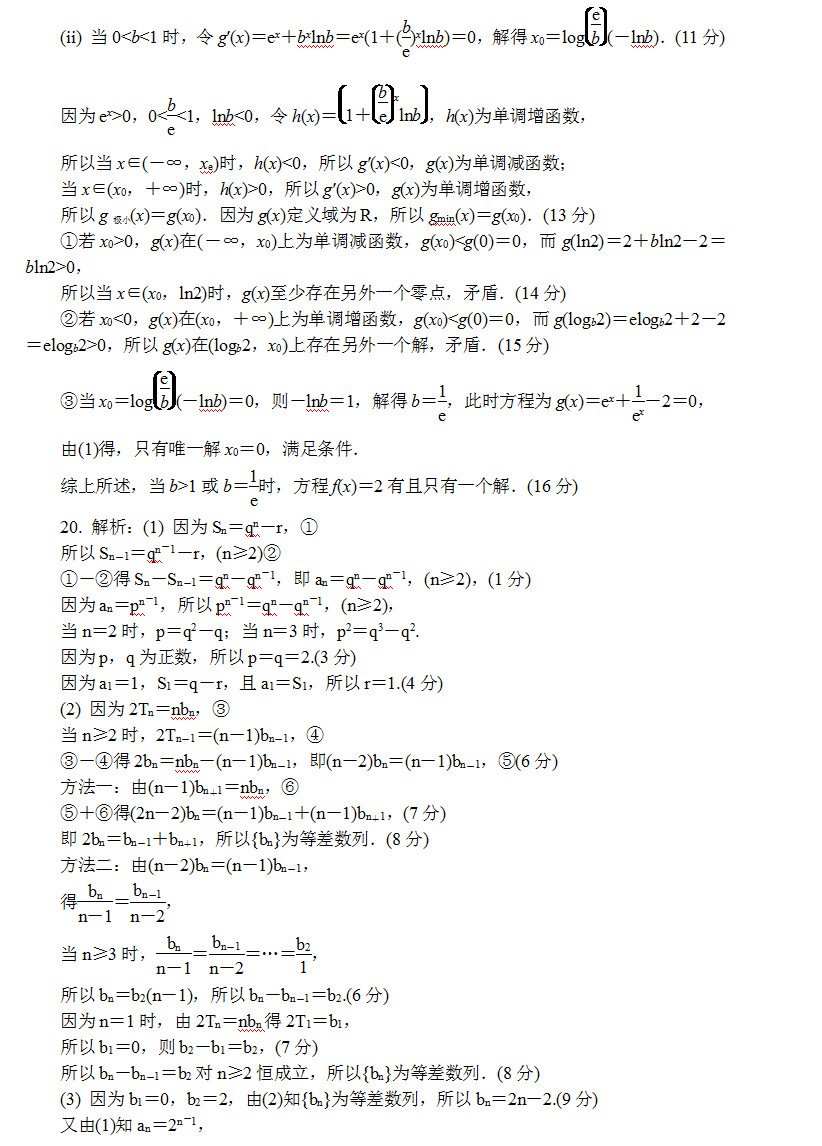 (ii) 当0<b<1时，令g′(x)＝eˣ＋bˣlnb＝eˣ(1＋(b/e)ˣlnb)＝0，解得x₀＝log(e/b)(－lnb)．(11分)
因为eˣ>0，0<b/e<1，lnb<0，令h(x)＝(1＋(b/e)ˣlnb)，h(x)为单调增函数，
所以当x∈(－∞，xₑ)时，h(x)<0，所以g′(x)<0，g(x)为单调减函数；
当x∈(x₀，＋∞)时，h(x)>0，所以g′(x)>0，g(x)为单调增函数，
所以g极小(x)＝g(x₀)．因为g(x)定义域为R，所以gmin(x)＝g(x₀)．(13分)
①若x₀>0，g(x)在(－∞，x₀)上为单调减函数，g(x₀)<g(0)＝0，而g(ln2)＝2＋bln2－2＝
bln2>0，
所以当x∈(x₀，ln2)时，g(x)至少存在另外一个零点，矛盾．(14分)
②若x₀<0，g(x)在(x₀，＋∞)上为单调增函数，g(x₀)<g(0)＝0，而g(logb2)＝elogb2＋2－2
＝elogb2>0，所以g(x)在(logb2，x₀)上存在另外一个解，矛盾．(15分)
③当x₀＝log(e/b)(－lnb)＝0，则－lnb＝1，解得b＝1/e，此时方程为g(x)＝eˣ＋1/eˣ－2＝0，
由(1)得，只有唯一解x₀＝0，满足条件．
综上所述，当b>1或b＝1/e时，方程f(x)＝2有且只有一个解．(16分)
20. 解析：(1) 因为Sₙ＝qⁿ－r，①
所以Sₙ₋₁＝qⁿ⁻¹－r，(n≥2)②
①－②得Sₙ－Sₙ₋₁＝qⁿ－qⁿ⁻¹，即aₙ＝qⁿ－qⁿ⁻¹，(n≥2)，(1分)
因为aₙ＝pⁿ⁻¹，所以pⁿ⁻¹＝qⁿ－qⁿ⁻¹，(n≥2)，
当n＝2时，p＝q²－q；当n＝3时，p²＝q³－q².
因为p，q为正数，所以p＝q＝2.(3分)
因为a₁＝1，S₁＝q－r，且a₁＝S₁，所以r＝1.(4分)
(2) 因为2Tₙ＝nbₙ，③
当n≥2时，2Tₙ₋₁＝(n－1)bₙ₋₁，④
③－④得2bₙ＝nbₙ－(n－1)bₙ₋₁，即(n－2)bₙ＝(n－1)bₙ₋₁，⑤(6分)
方法一：由(n－1)bₙ₊₁＝nbₙ，⑥
⑤＋⑥得(2n－2)bₙ＝(n－1)bₙ₋₁＋(n－1)bₙ₊₁，(7分)
即2bₙ＝bₙ₋₁＋bₙ₊₁，所以{bₙ}为等差数列．(8分)
方法二：由(n－2)bₙ＝(n－1)bₙ₋₁，
得bₙ/(n－1)＝bₙ₋₁/(n－2)，
当n≥3时，bₙ/(n－1)＝bₙ₋₁/(n－2)＝…＝b₂/1，
所以bₙ＝b₂(n－1)，所以bₙ－bₙ₋₁＝b₂.(6分)
因为n＝1时，由2Tₙ＝nbₙ得2T₁＝b₁，
所以b₁＝0，则b₂－b₁＝b₂，(7分)
所以bₙ－bₙ₋₁＝b₂对n≥2恒成立，所以{bₙ}为等差数列．(8分)
(3) 因为b₁＝0，b₂＝2，由(2)知{bₙ}为等差数列，所以bₙ＝2n－2.(9分)
又由(1)知aₙ＝2ⁿ⁻¹，